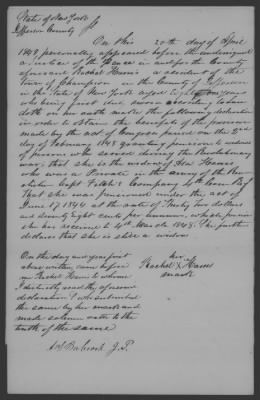 State of New York
Jefferson County } ss
On this 20th day of April
1848, personally appeared before the undersigned
a justice of the Peace in and for the County
aforesaid Rachel Harris a resident of the
Town of Champion in the County of Jefferson
in the State of New York aged Eighty years
who being first duly sworn according to law
doth on her oath make the following declaration
in order to obtain the benefits of the provision
made by the act of Congress passed on the 2nd
day of February 1848 granting pensions to widows
of persons who served during the Revolutionary
war, that she is the widow of Asa Harris
who was a Private in the army of the Rev-
olution Capt Company 4th Regt
That she was pensioned under the act of
June 17 1844 at the rate of Twenty two dollars
and seventy eight cents per annum, which pension
she has received to 4th March 1848. She further
declares that she is still a widow
On the day and year first
above written came before
me Rachel Harris to whom
I distinctly read the foregoing
declaration & who subscribed
the same by her mark and
made solemn oath to the
truth of the same
her
Rachel X Harris
mark
Babcock J. P.